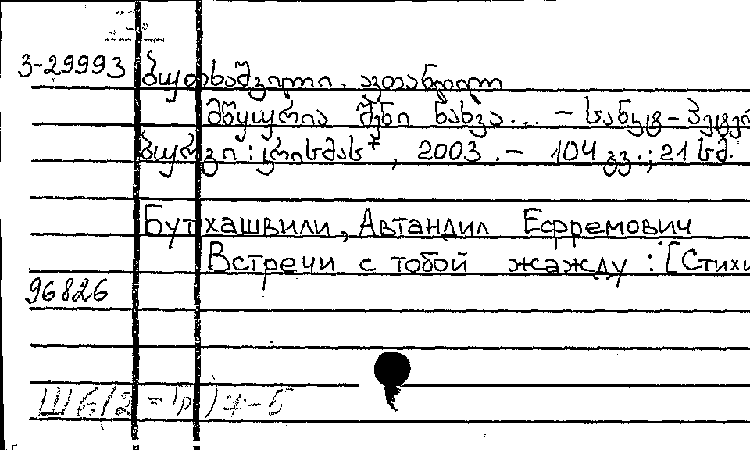 3-29993 ბუთხაშვილი, ავთანდილ
მწყურია შენი ნახვა... – სანკტ-პეტერ
ბურგი : კრისმას+, 2003. – 104 გვ.; 21 სმ.
Бутхашвили, Автандил Ефремович
Встречи с тобой жажду : [Стихи
96826